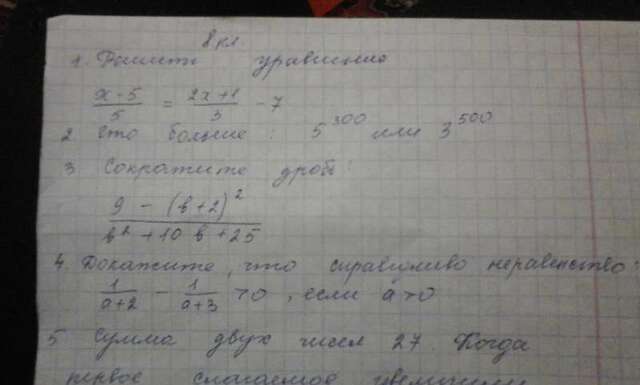 8 кл.
1. Решить уравнение
x-5/5 = 2x+1/3 - 7
2. Что больше: 5^300 или 3^500
3. Сократите дробь:
9 - (b+2)^2 / b^2 + 10b + 25
4. Докажите, что справедливо неравенство:
1/a+2 - 1/a+3 > 0, если a > 0
5 Сумма двух чисел 27. Когда
первое слагаемое увеличили